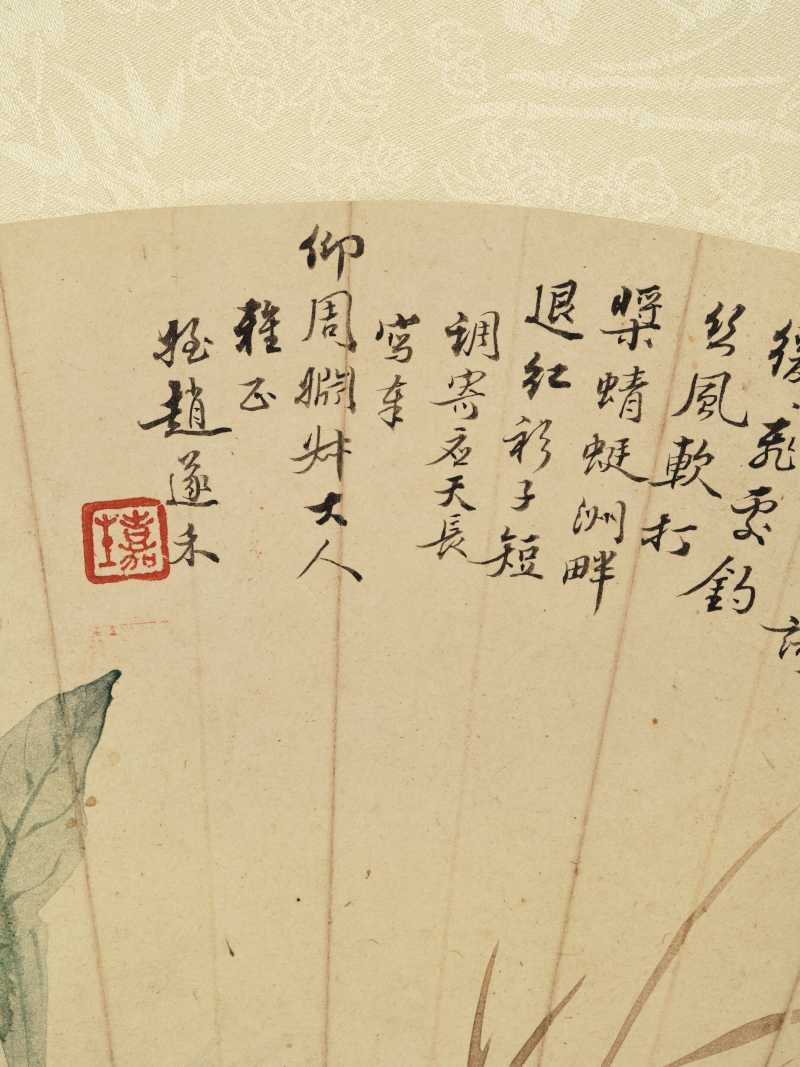 緩、飛處釣
絲風軟打
槳蜻蜓洲畔
退紅衫子短
調寄应天長
寫奉
仰周婣叔大人
雅正
姪趙遂禾